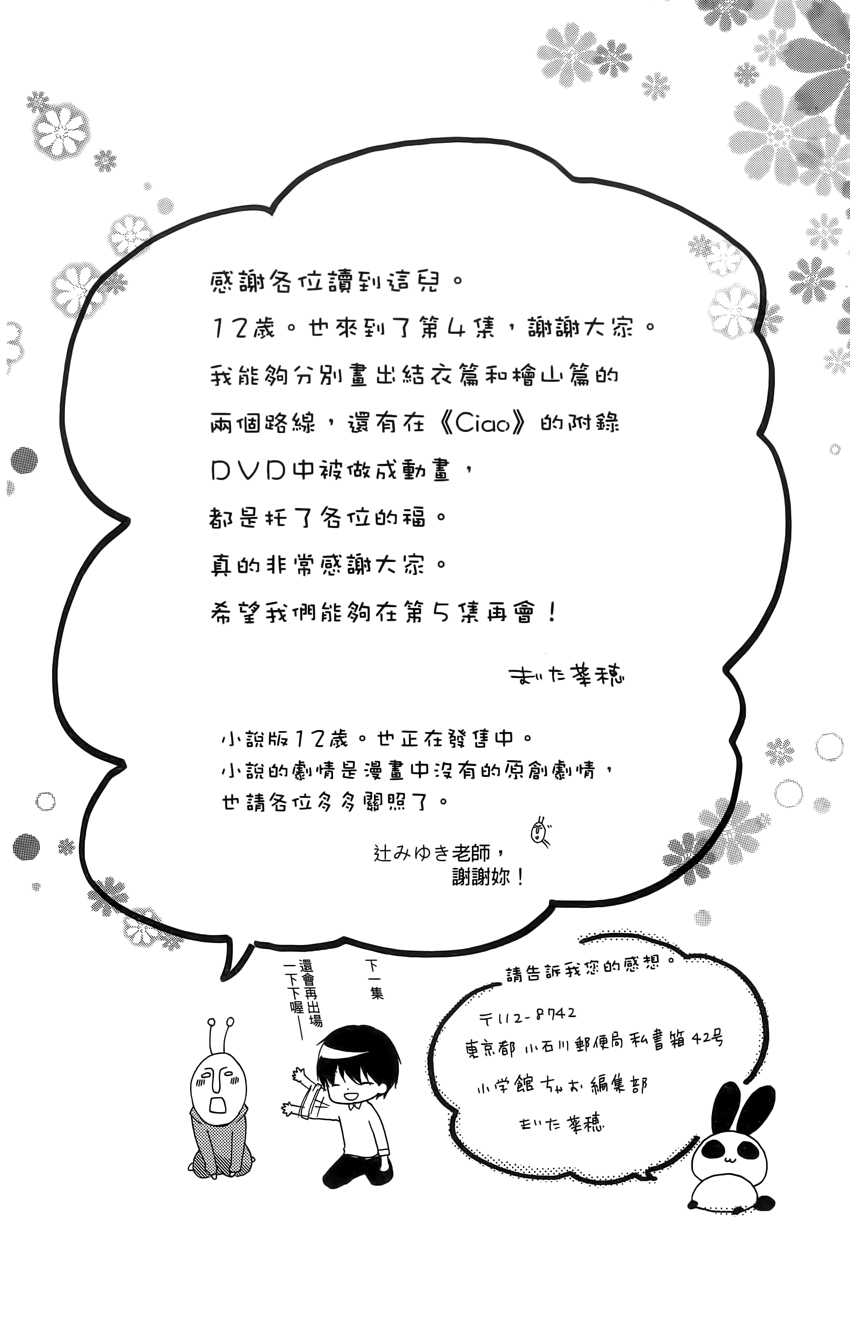 感謝各位讀到這兒。
12歲。也來到了第4集，謝謝大家。
我能夠分別畫出結衣篇和檜山篇的
兩個路線，還有在《Ciao》的附錄
DVD中被做成動畫，
都是托了各位的福。
真的非常感謝大家。
希望我們能夠在第5集再會！
まいた菜穂
小說版12歲。也正在發售中。
小說的劇情是漫畫中沒有的原創劇情，
也請各位多多關照了。
辻みゆき老師，
謝謝妳！
下一集
還會再出場
一下下喔——
請告訴我您的感想。
〒112-8742
東京都 小石川郵便局 私書箱42号
小学館 ちゃお 編集部
まいた菜穂